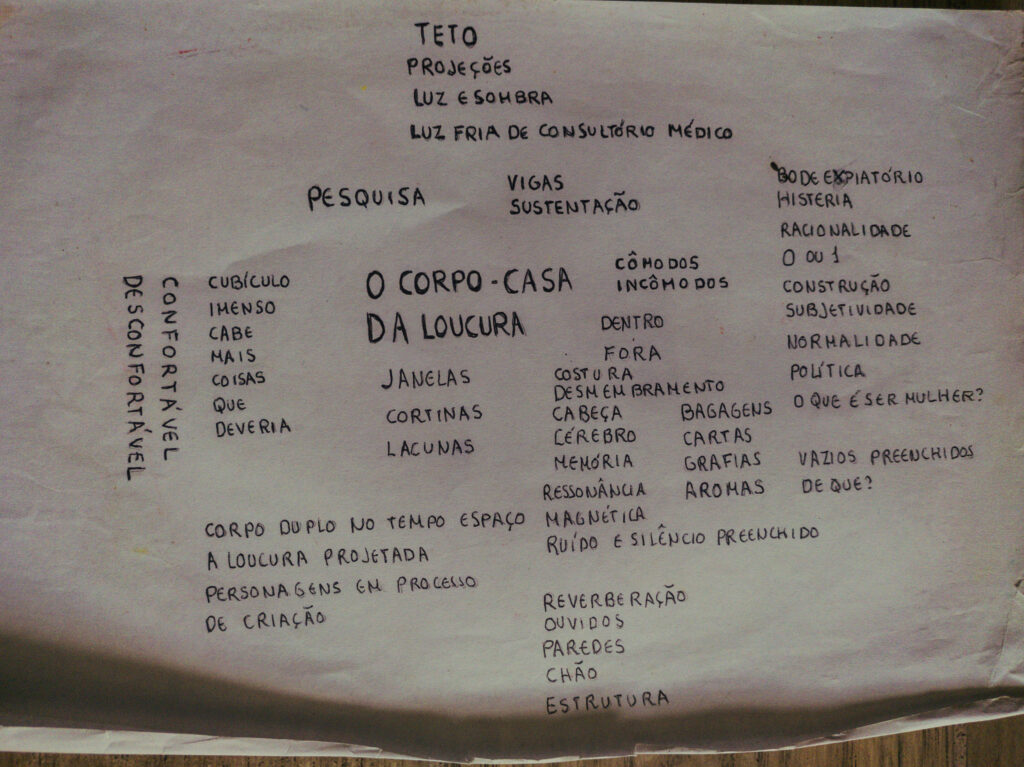 TETO
PROJEÇÕES
LUZ E SOMBRA
LUZ FRIA DE CONSULTÓRIO MÉDICO
PESQUISA
VIGAS
SUSTENTAÇÃO
BODE EXPIATÓRIO
HISTERIA
RACIONALIDADE
0 OU 1
CONSTRUÇÃO
SUBJETIVIDADE
NORMALIDADE
POLÍTICA
O QUE É SER MULHER?
VAZIOS PREENCHIDOS
DE QUE?
CONFORTÁVEL
DESCONFORTÁVEL
CUBÍCULO
IMENSO
CABE
MAIS
COISAS
QUE
DEVERIA
O CORPO-CASA
DA LOUCURA
JANELAS
CORTINAS
LACUNAS
CÔMODOS
INCÔMODOS
DENTRO
FORA
COSTURA
DESMEMBRAMENTO
CABEÇA
CÉREBRO
MEMÓRIA
RESSONÂNCIA
MAGNÉTICA
RUÍDO E SILÊNCIO PREENCHIDO
BAGAGENS
CARTAS
GRAFIAS
AROMAS
CORPO DUPLO NO TEMPO ESPAÇO
A LOUCURA PROJETADA
PERSONAGENS EM PROCESSO
DE CRIAÇÃO
REVERBERAÇÃO
OUVIDOS
PAREDES
CHÃO
ESTRUTURA